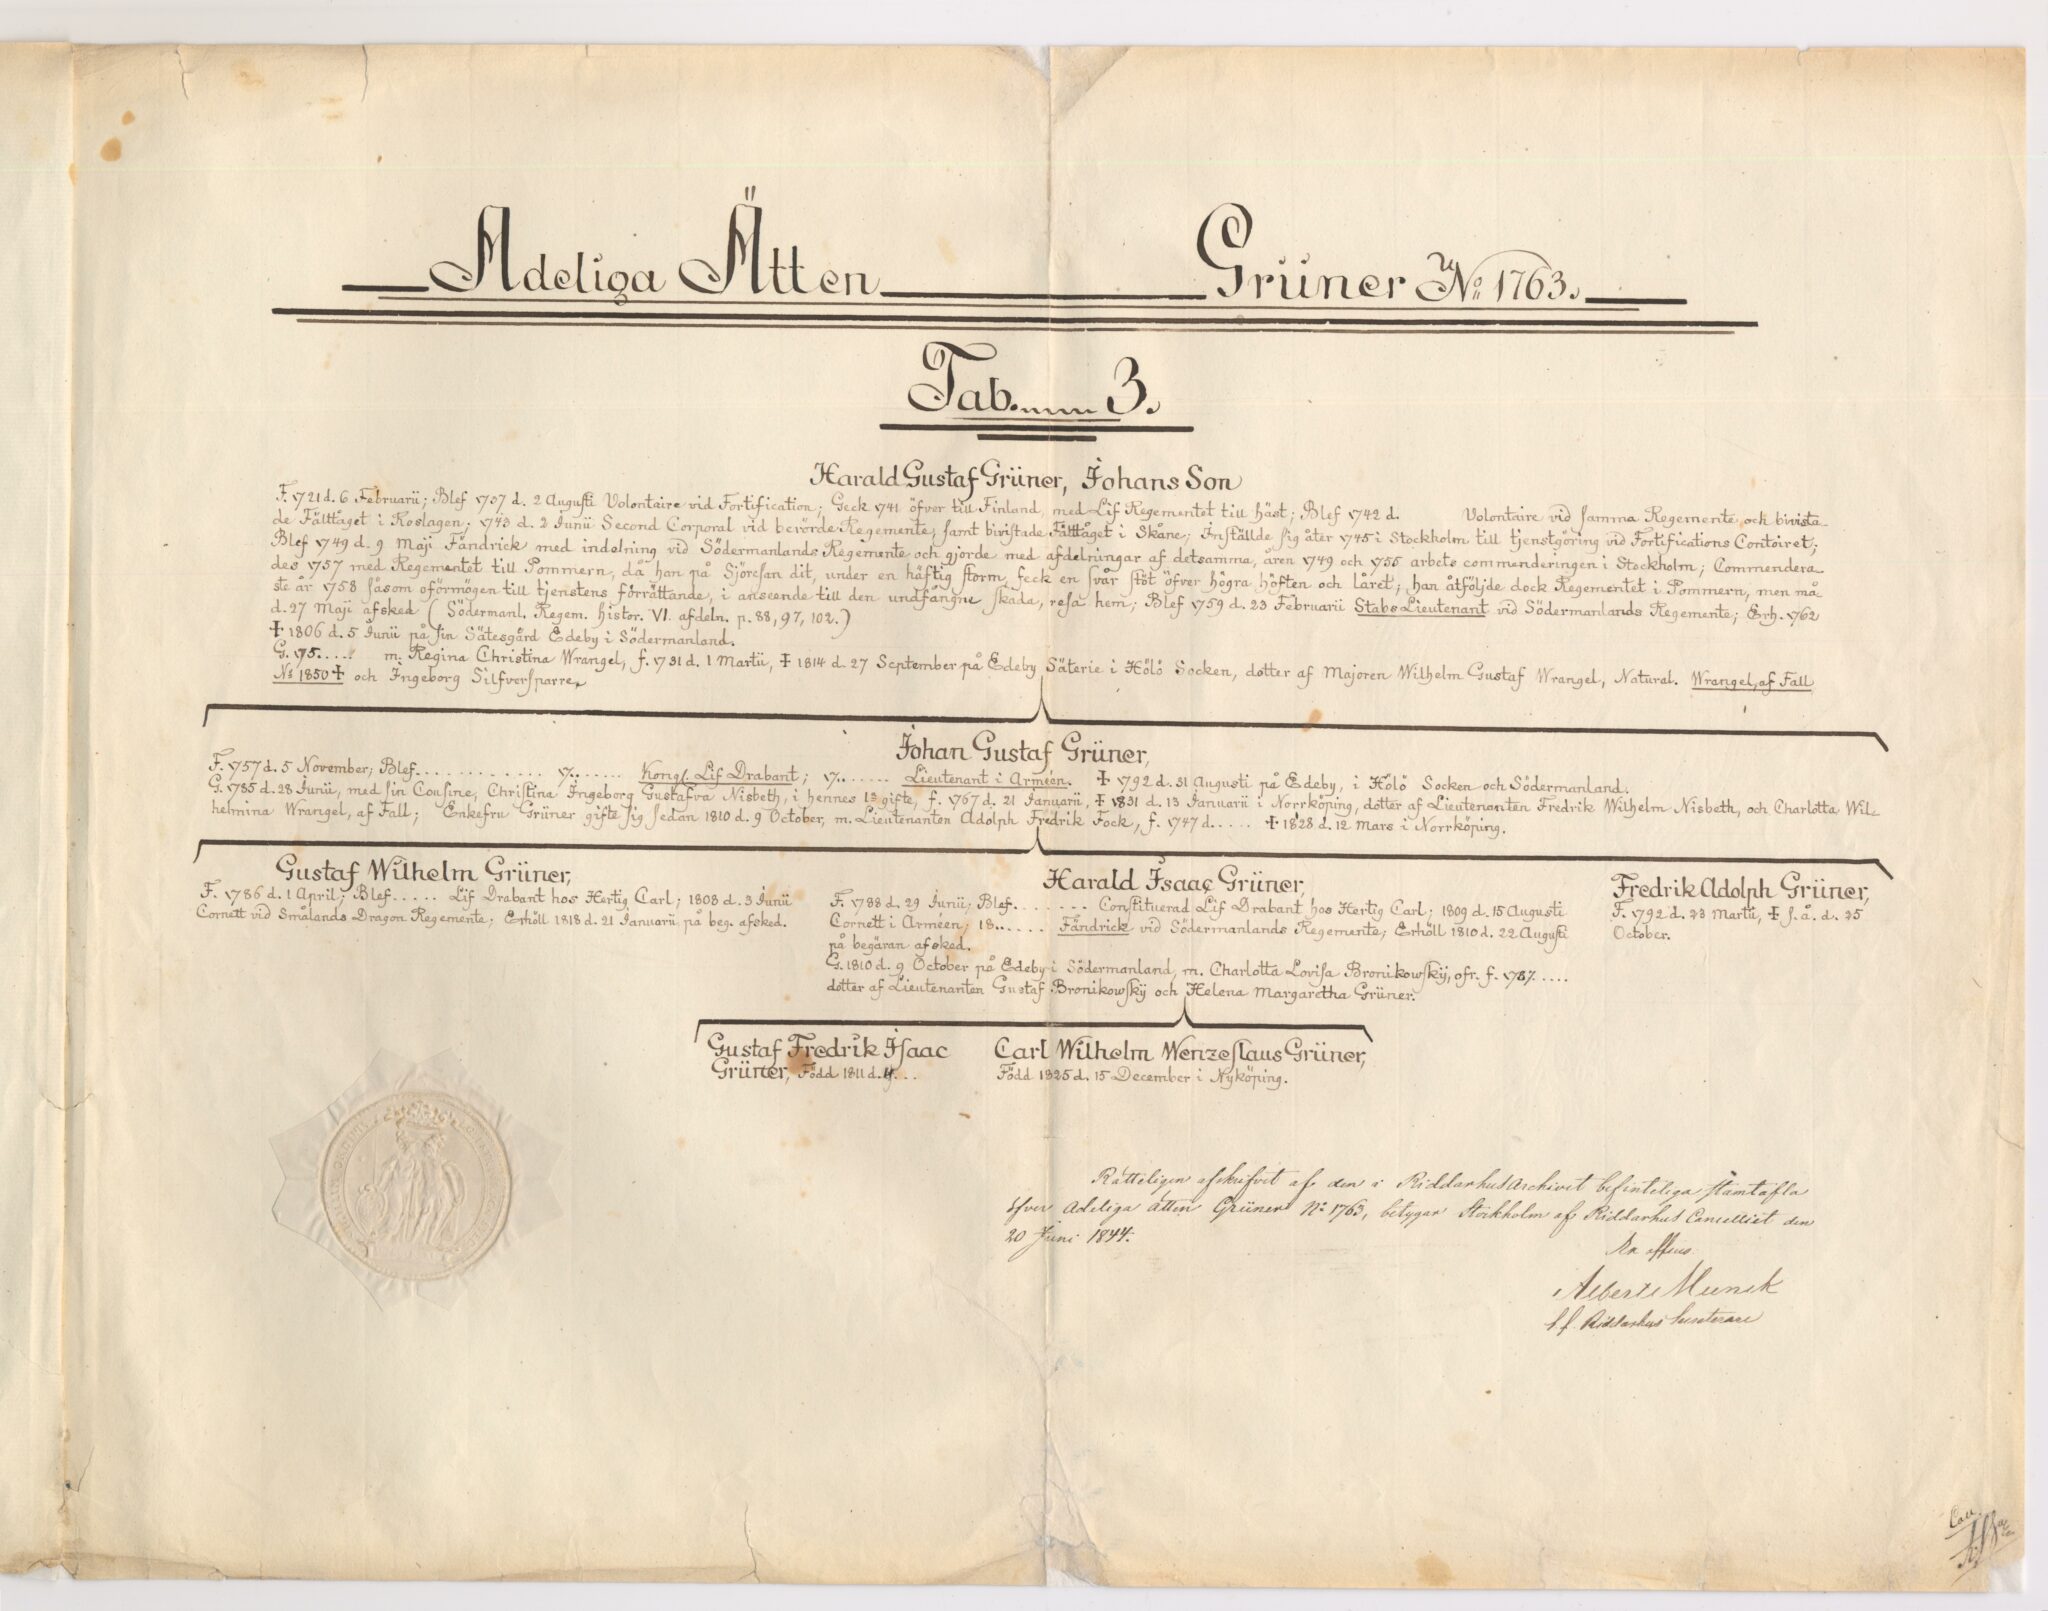 Adeliga Ätten Grüner No 1763.
Tab. 3.
Harald Gustaf Grüner, Johans Son
F. 1721 d. 6 Februarii; Blef 1737 d. 2 Augusti Volontaire vid Fortification; Geck 1741 öfver till Finland, med Lif Regementet till häst; Blef 1742 d. Volontaire vid samma Regemente och bivista-
de Fälttåget i Roslagen; 1743 d. 2 Junii Second Corporal vid berörde Regemente, samt bivistade Fälttåget i Skåne; Inställde sig åter 1745 i Stockholm till tjenstgöring vid Fortifications Contoiret;
Blef 1749 d. 9 Maji Fändrick med indelning vid Södermanlands Regemente och gjorde med afdelningar af detsamma, åren 1749 och 1755 arbets commenderingen i Stockholm; Commendera-
des 1757 med Regementet till Pommern, då han på Sjöresan dit, under en häftig storm, feck en svår stöt öfver högra höften och låret; han åtföljde dock Regementet i Pommern, men må-
ste år 1758 såsom oförmögen till tjenstens förrättande, i anseende till den undfångne skada, resa hem; Blef 1759 d. 23 Februarii Stabs Lieutenant vid Södermanlands Regemente; Erh. 1762
d. 27 Maji afsked (Södermanl. Regem. histor. VI. afdeln. p. 88, 97, 102.)
† 1806 d. 5 Junii på sin Sätesgård Edeby i Södermanland.
G. 175..... m. Regina Christina Wrangel, f. 1731 d. 1 Martii, † 1814 d. 27 September på Edeby Säterie i Hölö Socken, dotter af Majoren Wilhelm Gustaf Wrangel, Natural. Wrangel, af Fall
No 1850 † och Ingeborg Silfversparre,
Johan Gustaf Grüner,
F. 1757 d. 5 November; Blef............. 17....... Kongl. Lif Drabant; 17....... Lieutenant i Arméen. † 1792 d. 31 Augusti på Edeby, i Hölö Socken och Södermanland.
G. 1785 d. 28 Junii, med sin Cousine, Christina Ingeborg Gustafva Nisbeth, i hennes 1a gifte, f. 1767 d. 21 Januarii, † 1831 d. 13 Januarii i Norrköping, dotter af Lieutenanten Fredrik Wilhelm Nisbeth, och Charlotta Wil-
helmina Wrangel, af Fall; Enkefru Grüner gifte sig sedan 1810 d. 9 October, m. Lieutenanten Adolph Fredrik Fock, f. 1747 d..... † 1828 d. 12 Mars i Norrköping.
Gustaf Wilhelm Grüner,
F. 1786 d. 1 April; Blef..... Lif Drabant hos Hertig Carl; 1808 d. 3 Junii
Cornett vid Smålands Dragon Regemente; Erhöll 1818 d. 21 Januarii på beg. afsked.
Harald Isaac Grüner,
F. 1788 d. 29 Junii; Blef........ Constituerad Lif Drabant hos Hertig Carl; 1809 d. 15 Augusti
Cornett i Arméen; 18....... Fändrick vid Södermanlands Regemente; Erhöll 1810 d. 22 Augusti
på begäran afsked.
G. 1810 d. 9 October på Edeby i Södermanland, m. Charlotta Lovisa Bronikowskÿ, ofr. f. 1787.....
dotter af Lieutenanten Gustaf Bronikowskÿ och Helena Margaretha Grüner.
Fredrik Adolph Grüner,
F. 1792 d. 23 Martii, † s. å. d. 25
October.
Gustaf Fredrik Isaac
Grüner, Född 1811 d. 4...
Carl Wilhelm Wenzeslaus Grüner,
Född 1825 d. 15 December i Nyköping.
Rätteligen afskrifvit af den i RiddarhusArchivet befinteliga stamtafla
öfver Adeliga ätten Grüner No 1763, betygar Stockholm af Riddarhus Cancelliet den
20 Juni 1844.
Ex officio.
Albert Munck
t.f. Riddarhus